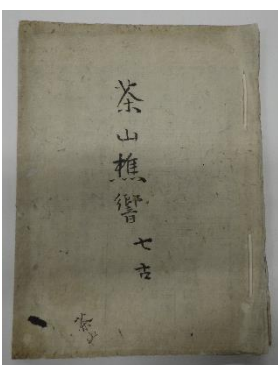 茶山樵響 七古